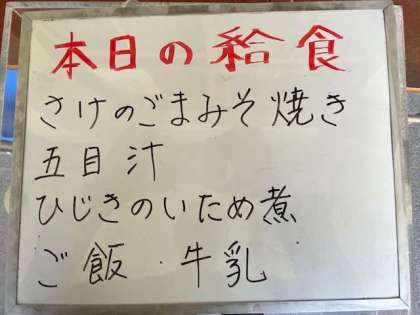 本日の給食
さけのごまみそ焼き
五目汁
ひじきのいため煮
ご飯・牛乳